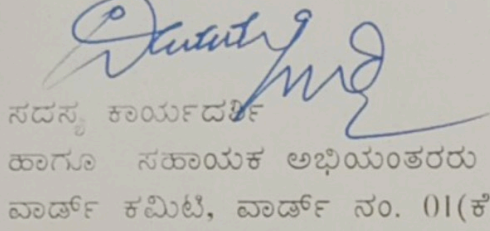 ಸದಸ್ಯ ಕಾರ್ಯದರ್ಶಿ
ಹಾಗೂ ಸಹಾಯಕ ಅಭಿಯಂತರರು
ವಾರ್ಡ್ ಕಮಿಟಿ, ವಾರ್ಡ್ ನಂ. 01(ಕೆ